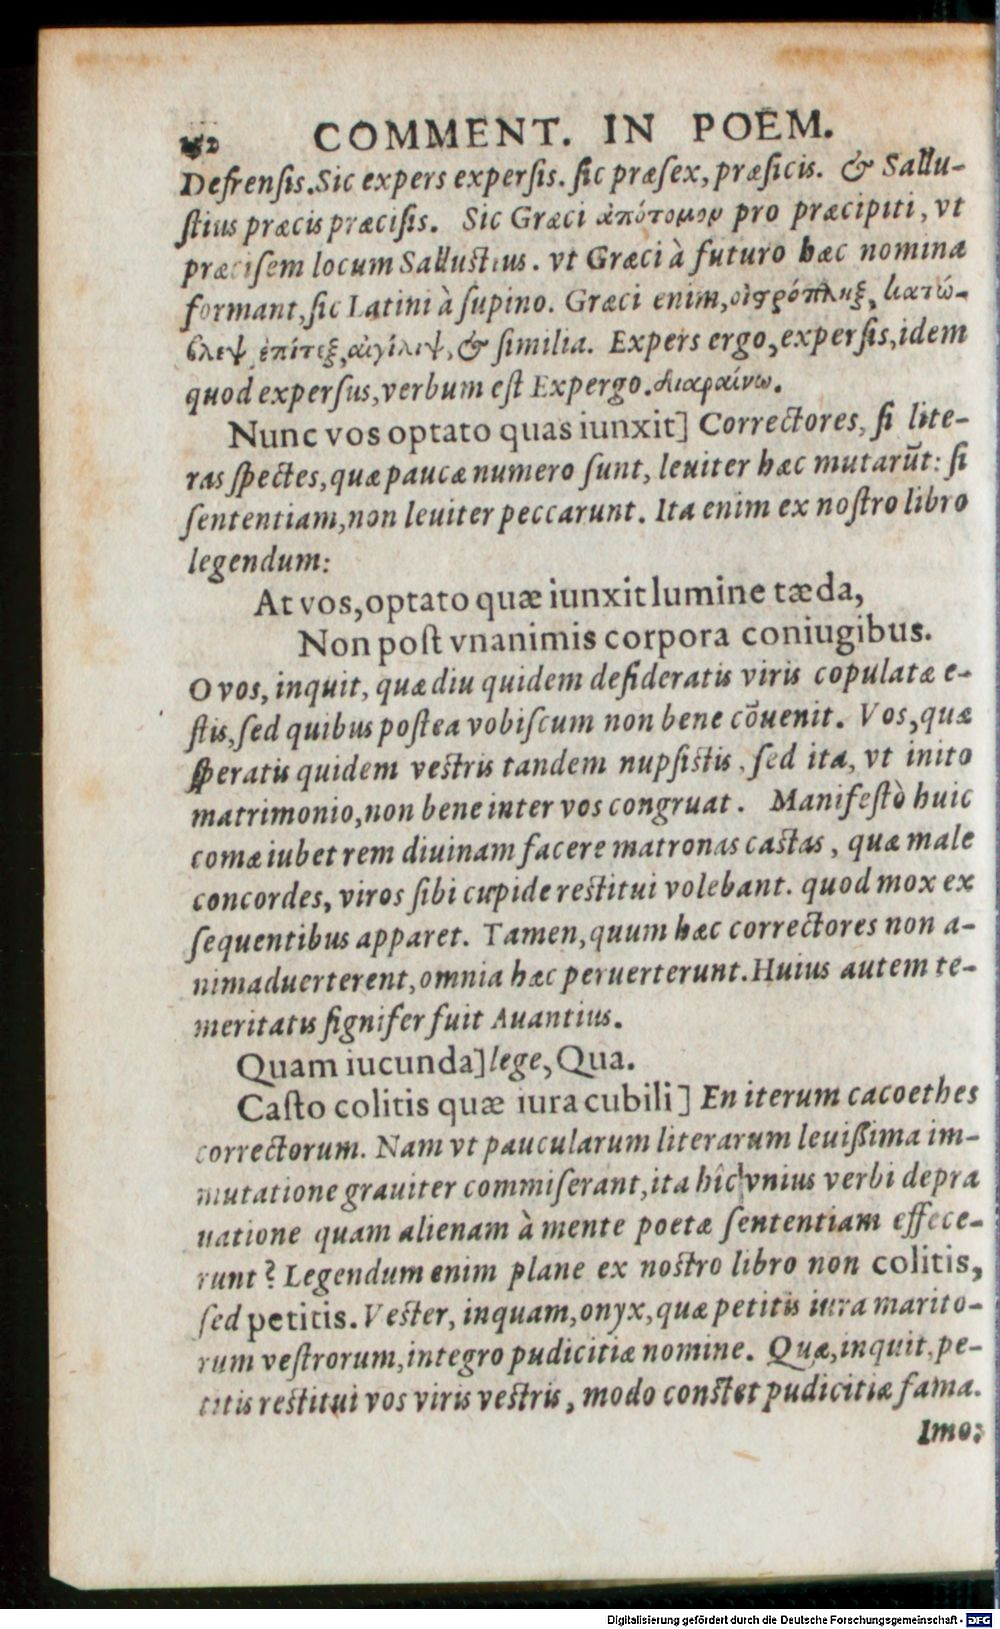 152 COMMENT. IN POEM.
Defrensis. Sic expers expersis. sic præsex, præsicis. & Sallu-
stius præcis præcisis. Sic Græci ἀπότομον pro præcipiti, vt
præcisem locum Sallustius. vt Græci à futuro hæc nomina
formant, sic Latini à supino. Græci enim, οἰστρόπληξ, κατώ-
βλεψ, ἐπίτεξ, αἰγίλιψ, & similia. Expers ergo, expersis, idem
quod expersus, verbum est Expergo. διαῤῥαίνω.
Nunc vos optato quas iunxit] Correctores, si lite-
ras spectes, quæ paucæ numero sunt, leuiter hæc mutarũt: si
sententiam, non leuiter peccarunt. Ita enim ex nostro libro
legendum:
At vos, optato quæ iunxit lumine tæda,
Non post vnanimis corpora coniugibus.
O vos, inquit, quæ diu quidem desideratis viris copulatæ e-
stis, sed quibus postea vobiscum non bene cõuenit. Vos, quæ
speratis quidem vestris tandem nupsistis, sed ita, vt inito
matrimonio, non bene inter vos congruat. Manifestò huic
comæ iubet rem diuinam facere matronas castas, quæ male
concordes, viros sibi cupide restitui volebant. quod mox ex
sequentibus apparet. Tamen, quum hæc correctores non a-
nimaduerterent, omnia hæc peruerterunt. Huius autem te-
meritatis signifer fuit Auantius.
Quam iucunda] lege, Qua.
Casto colitis quæ iura cubili] En iterum cacoethes
correctorum. Nam vt paucularum literarum leuissima im-
mutatione grauiter commiserant, ita hîc vnius verbi depra
uatione quam alienam à mente poetæ sententiam effece-
runt? Legendum enim plane ex nostro libro non colitis,
sed petitis. Vester, inquam, onyx, quæ petitis iura marito-
rum vestrorum, integro pudicitiæ nomine. Quæ, inquit, pe-
titis restitui vos viris vestris, modo constet pudicitiæ fama.
Imo:
Digitalisierung gefördert durch die Deutsche Forschungsgemeinschaft - DFG